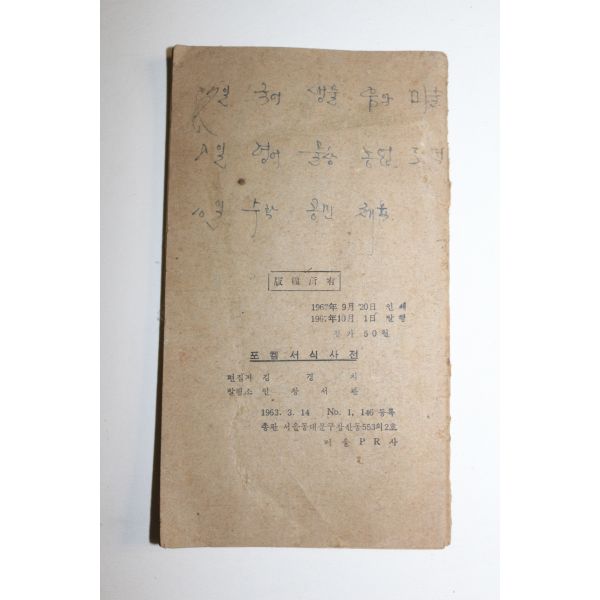 국어 생물 음악 미술
영어 물상 농업
수학 공민 체육
版權所有
1967年 9月 20日 인쇄
1967年 10月 1日 발행
정가 50원
포켙서식사전
편집자 김 경
발행소 인 창 서 관
1963. 3. 14 No. 1, 146 등록
총판 서울동대문구창신동553의2호
서울 P R 사